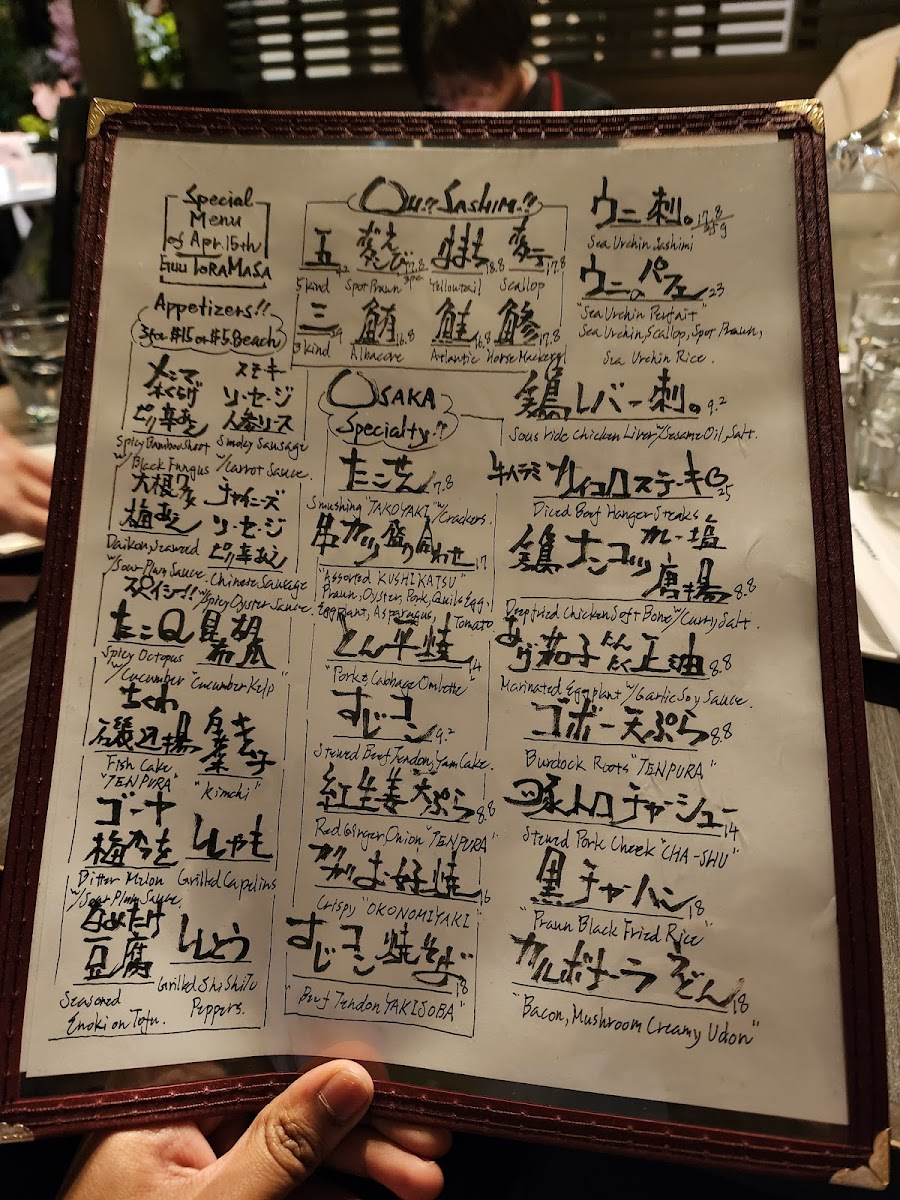 Special
Menu
of Apr. 15th
Guu TORAMASA
Appetizers!!
3 for $15 or $5.8 each
メンマ
木くらげ
ピリ辛あえ
Spicy Bamboo Shoot
w/Black Fungus
ステーキ
ソーセージ
人参ソース
Smoky Sausage
w/Carrot Sauce
大根ワカメ
梅あえ
Daikon, Seaweed
w/Sour Plum Sauce
チャイニーズ
ソーセージ
ピリ辛あえ
Chinese Sausage
w/Spicy Oyster Sauce
スパイシー!!
たこQ
Spicy Octopus
w/Cucumber
昆布
胡瓜
"Cucumber Kelp"
ちくわ
磯辺揚
Fish Cake
"TENPURA"
白菜キムチ
"Kimchi"
ゴーヤ
梅肉あえ
Bitter Melon
w/Sour Plum Sauce
ししゃも
Grilled Capelins
なめたけ
豆腐
Seasoned
Enoki on Tofu.
ししとう
Grilled ShiShiTo
Peppers.
Oh!! SASHIMI!!
五 42
5 kind
ボタンえび 17.8
3pc
Spot Prawn
はまち 18.8
Yellowtail
ホタテ 17.8
Scallop
三 29
3 kind
鮪 16.8
Albacore
鮭 16.8
Atlantic
鯵 17.8
Horse Mackerel
OSAKA
Specialty!!
たこせん 7.8
Smushing "TAKOYAKI" w/Crackers.
串カツ盛り合わせ 17
"Assorted KUSHIKATSU"
Praun, Oyster, Pork, Quile Egg,
Eggplant, Asparagus, Tomato
とん平焼 14
"Pork & Cabbage Omlette"
すじコン 9.2
Stewed Beef Tendon, Yam Cake.
紅生姜天ぷら 8.8
Red Ginger Onion "TENPURA"
ガリガリお好焼 16
Crispy "OKONOMIYAKI"
すじコン焼そば 18
"Beef Tendon YAKISOBA"
ウニ刺。 17.8/25g
Sea Urchin Sashimi
ウニのパフェ 23
"Sea Urchin Perfait"
Sea Urchin, Scallop, Spot Praun,
Sea Urchin Rice.
鶏レバー刺。 9.2
Sous Vide Chicken Liver w/Sesame Oil, Salt.
牛ハラミ サイコロステーキ 25
Diced Beef Hanger Steaks
鶏ナンコツ カレー塩唐揚 8.8
Deepfried Chicken Soft Bone w/Curry Salt.
あげ茄子にんにく正油 8.8
Marinated Eggplant w/Garlic Soy Sauce.
ゴボー天ぷら 8.8
Burdock Roots "TENPURA"
豚トロチャーシュー 14
Stewed Pork Cheek "CHA-SHU"
黒チャーハン 18
"Praun Black Fried Rice"
カルボナーラうどん 18
"Bacon, Mushroom Creamy Udon"